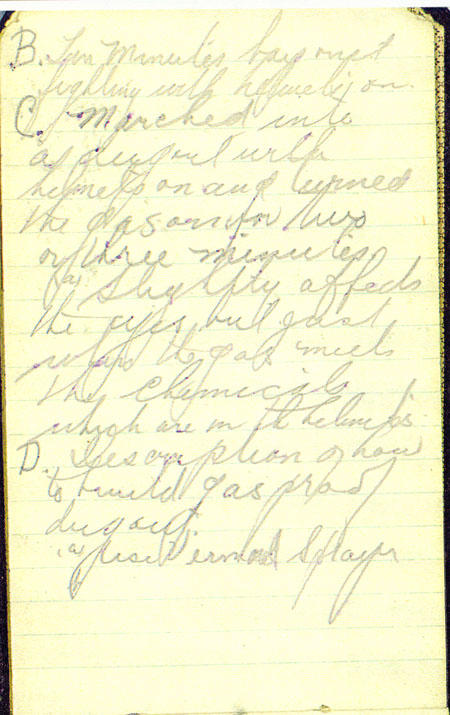 B. Ten Minutes bayonet
fighting with helmets on.
C. Marched into
a dugout with
helmets on and turned
the gas on for two
or three minutes
(a) Slightly affects
the eyes but just
when the gas meets
the Chemicals
which are in helmets
D. Description of how
to build gas proof
dugout
(a) Use Vermorel Sprayer